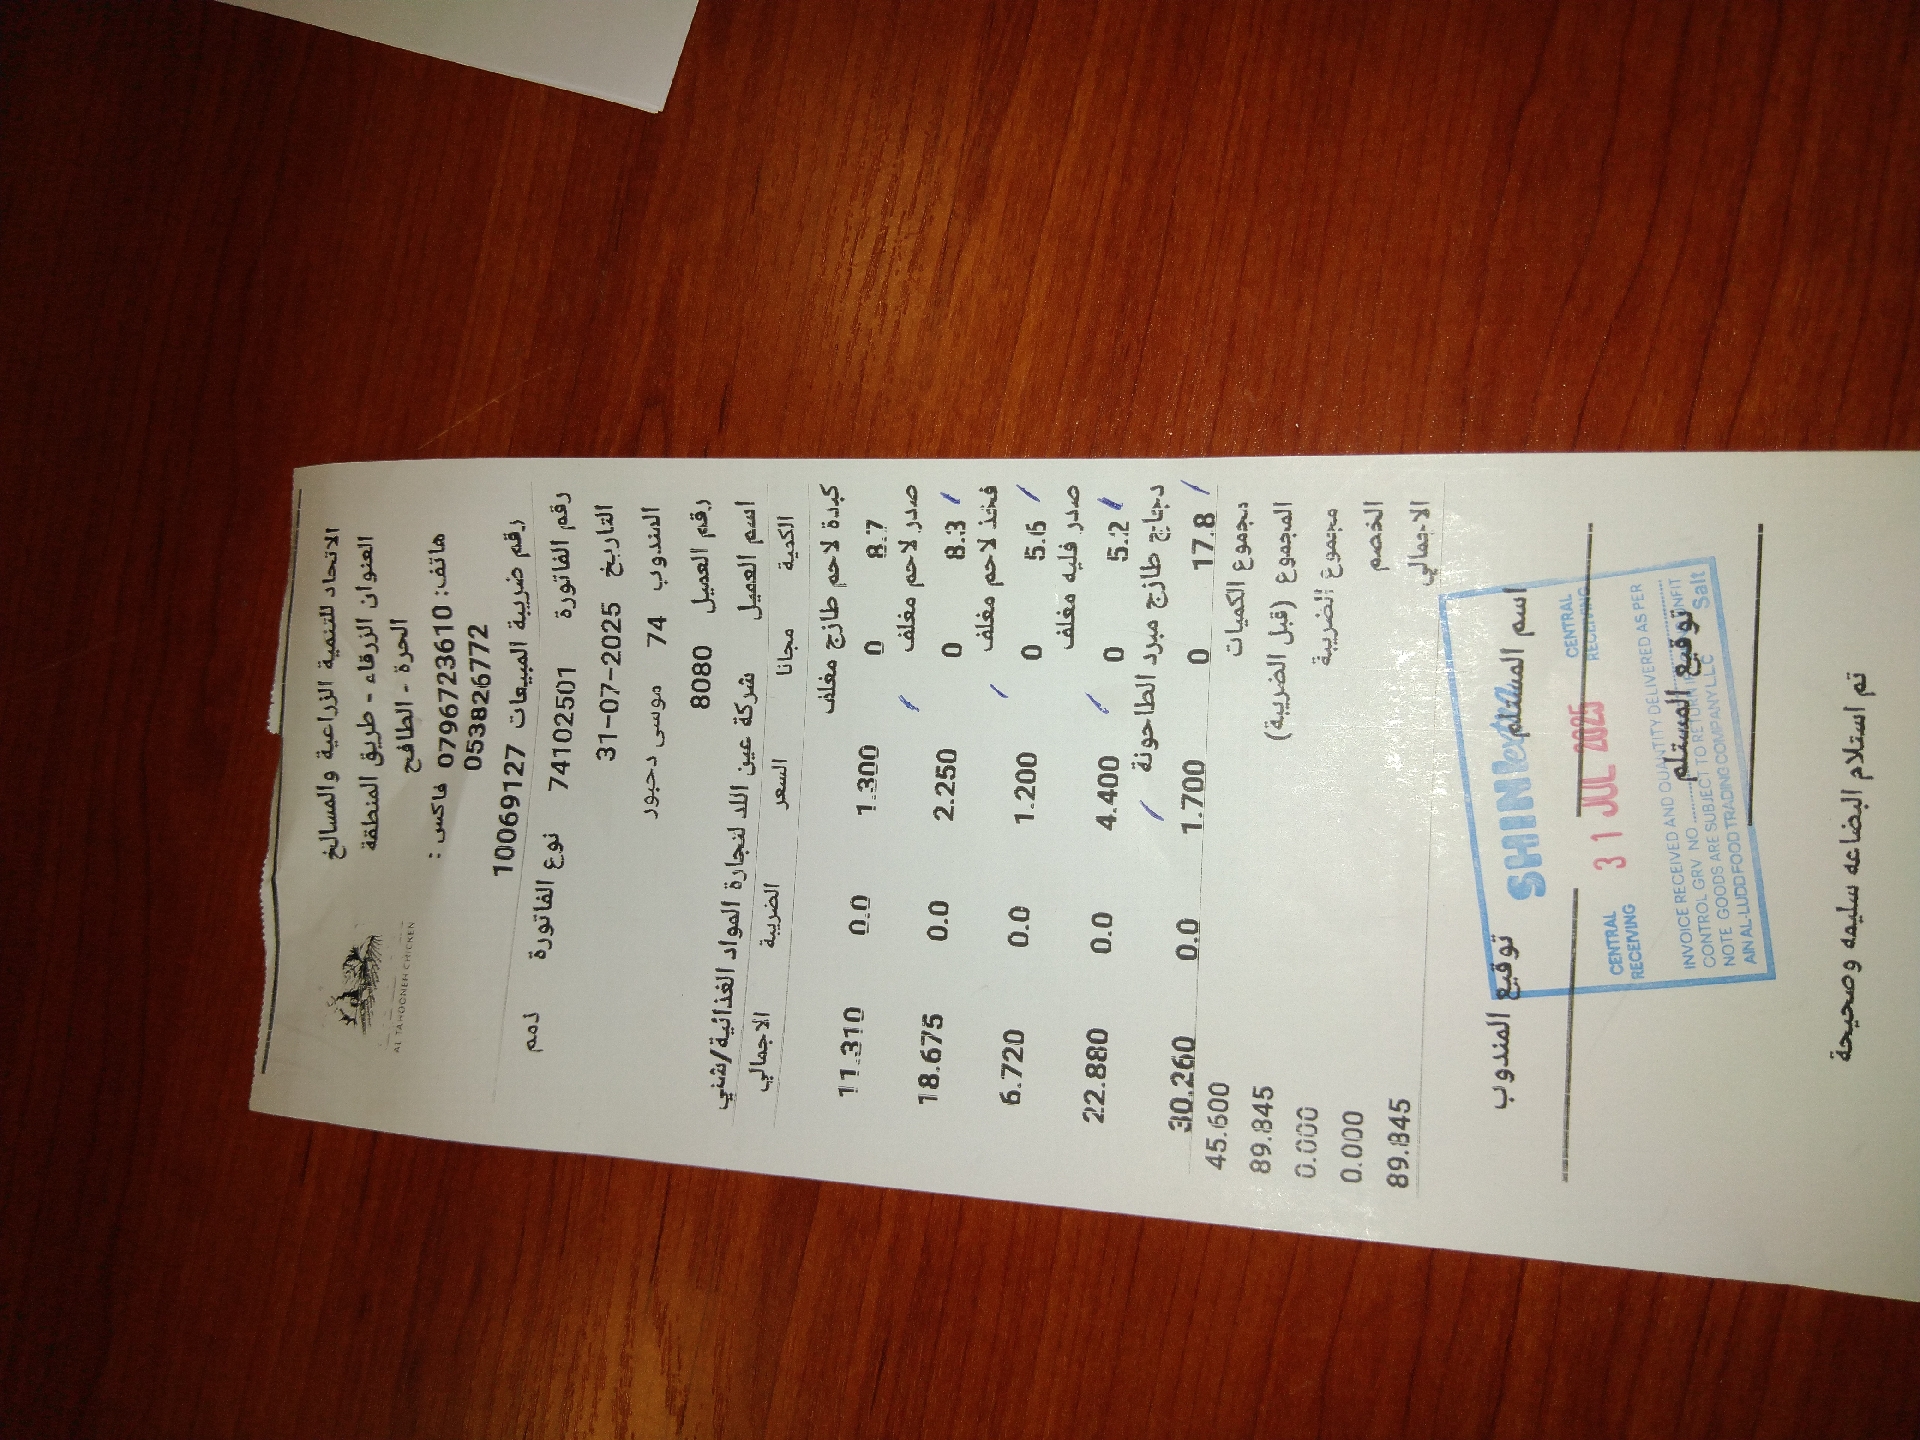 الاتحاد للتنمية الزراعية والمسالخ
العنوان الزرقاء - طريق المنطقة
الحرة - الطافح
هاتف: 0796723610 فاكس :
053826772
AL TAHOONEH CHICKEN
رقم ضريبة المبيعات 10069127
رقم الفاتورة 74102501 نوع الفاتورة ذمم
التاريخ 31-07-2025
المندوب 74 موسى دحبور
رقم العميل 8080
اسم العميل شركة عين اللد لتجارة المواد الغذائية/شني
الكمية مجانا السعر الضريبة الاجمالي
كبدة لاحم طازج مغلف
8.7 0 1.300 0.0 11.310
صدر لاحم مغلف
8.3 0 2.250 0.0 18.675
فخذ لاحم مغلف
5.6 0 1.200 0.0 6.720
صدر فليه مغلف
5.2 0 4.400 0.0 22.880
دجاج طازج مبرد الطاحونة
17.8 0 1.700 0.0 30.260
مجموع الكميات 45.600
المجموع (قبل الضريبة) 89.845
مجموع الضريبة 0.000
الخصم 0.000
الاجمالي 89.845
اسم المستلم توقيع المندوب
CENTRAL RECEIVING 31 JUL 2025 CENTRAL RECEIVING
INVOICE RECEIVED AND QUANTITY DELIVERED AS PER
CONTROL GRV NO
NOTE GOODS ARE SUBJECT TO RETURN UNFIT
AIN AL-LUDD FOOD TRADING COMPANY LLC Salt
توقيع المستلم
تم استلام البضاعه سليمه وصحيحة